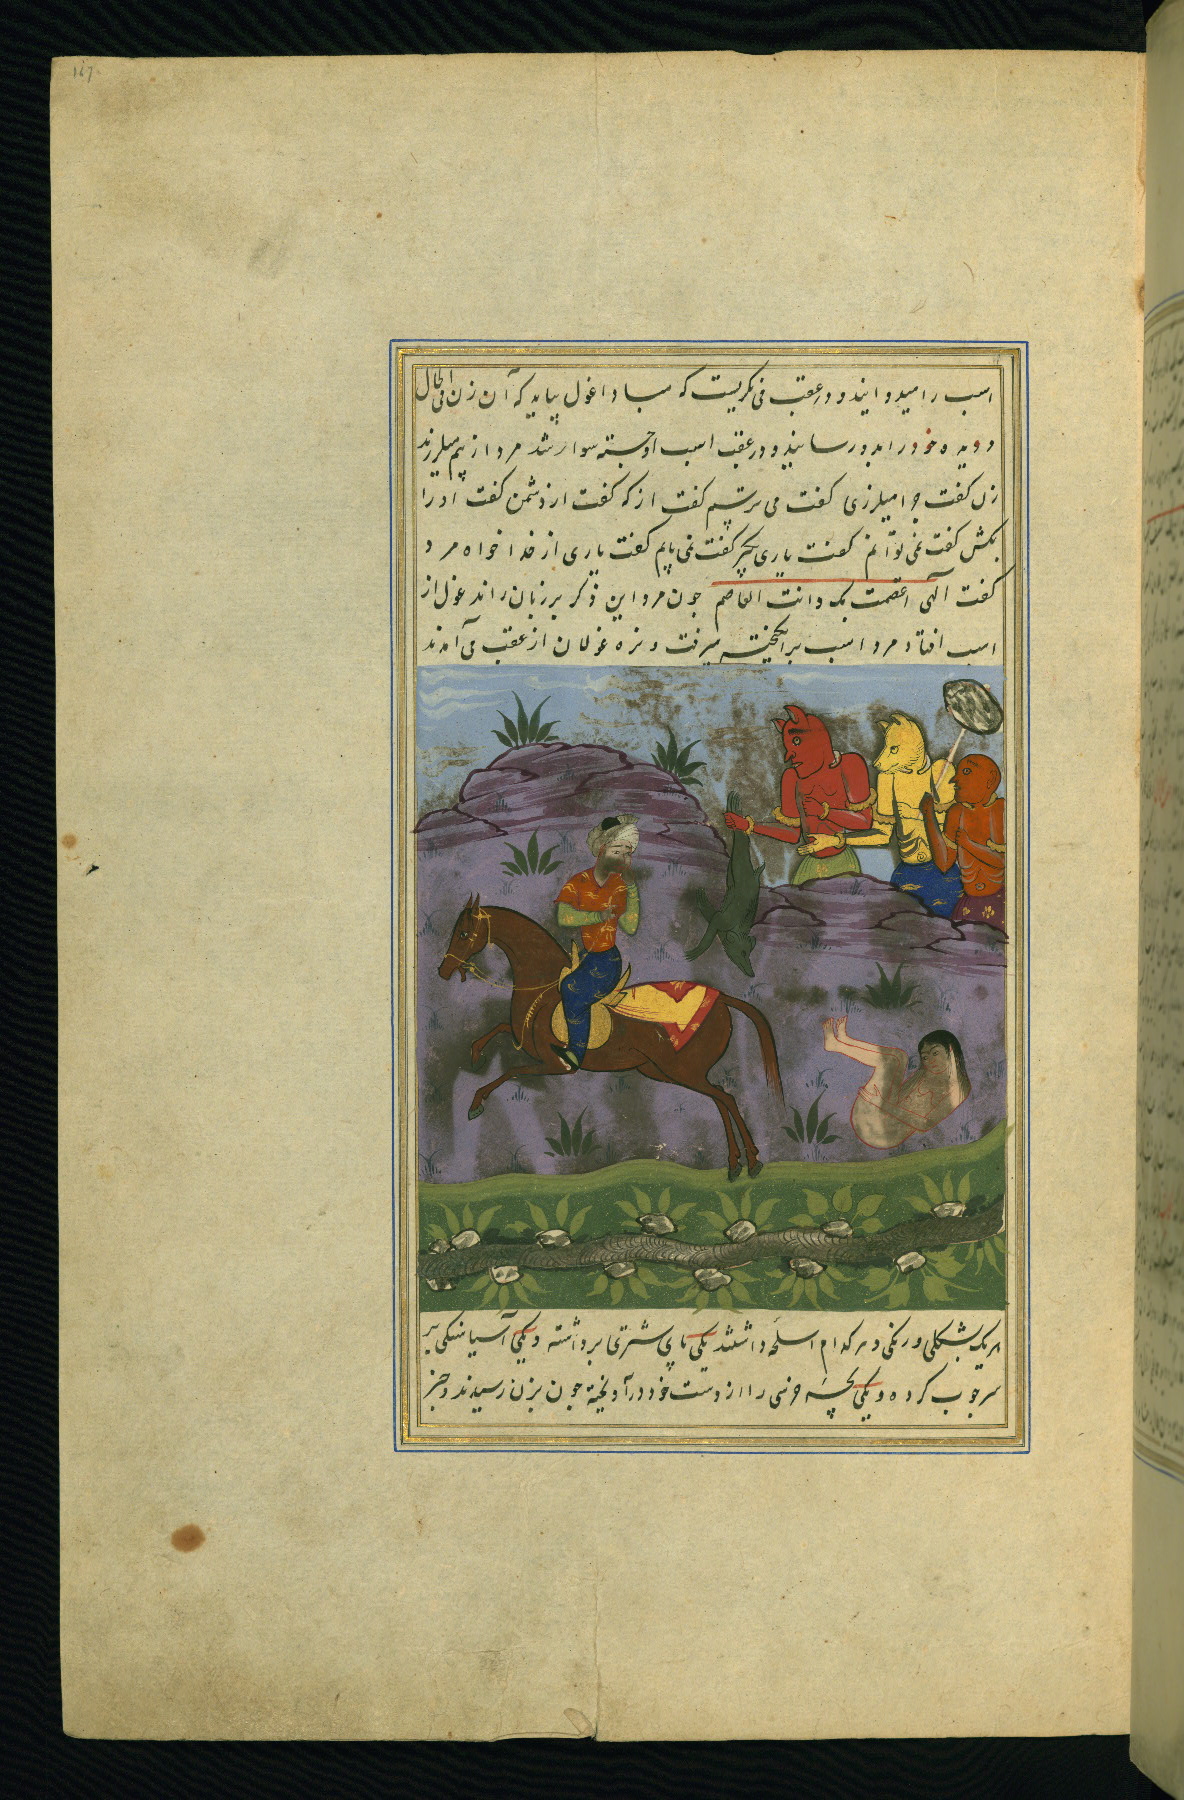 167
اسب را میدوایند و در عقب می نکریست که مبادا غول بیاید که آن زن فی الحال
دویده خود را بدو رسانید و در عقب اسب او جسته سوار شد مرد از بیم میلرزند
زن کفت چرا میلرزی کفت می ترسم کفت از که کفت از دشمن کفت او را
بکش کفت نمی توانم کفت یاری بکیر کفت نمی یابم کفت یاری از خدا خواه مرد
کفت آلهی اعصمت بک وانت العاصم جون مرد این ذکر بر زبان راند غول از
اسب افتاد مرد اسب برانکیخته میرفت و نره غولان از عقب می آمدند
هریک بشکلی و رنکی و هر کدام اسلحه داشتند یکی پای شتری برداشته و یکی آسیا سنکی بر
سر جوب کرده و یکی بچه خرسی را از دست خود در آویخته جون بزن رسیدند